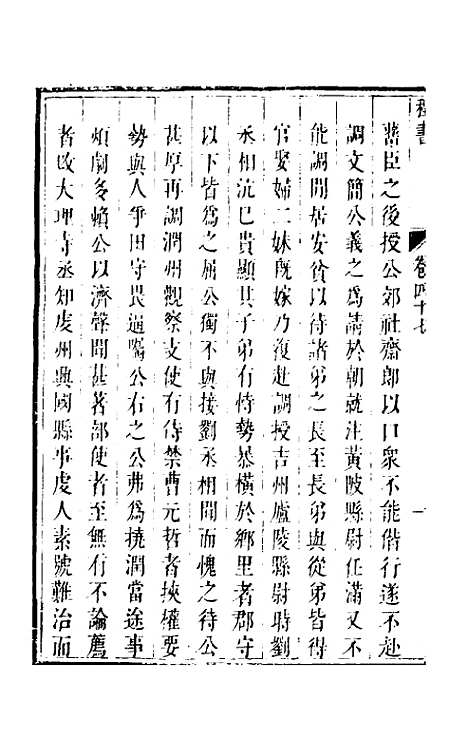 程書　卷四十七　一
舊臣之後授公郊社齋郎以口衆不能偕行遂不赴
調文簡公義之爲請於朝就注黃陂縣尉任滿又不
能調閒居安貧以待諸弟之長至長弟與從弟皆得
官娶婦二妹旣嫁乃復赴調授吉州廬陵縣尉時劉
丞相沆已貴顯其子弟有恃勢暴橫於鄉里者郡守
以下皆爲之屈公獨不與接劉丞相聞而愧之待公
甚厚再調潤州觀察支使有侍禁曹元哲者挾權要
勢與人爭田守畏逼囑公右之公弗爲撓潤當途事
煩劇多賴公以濟聲聞甚著部使者至無有不論薦
者改大理寺丞知虔州興國縣事虔人素號難治而